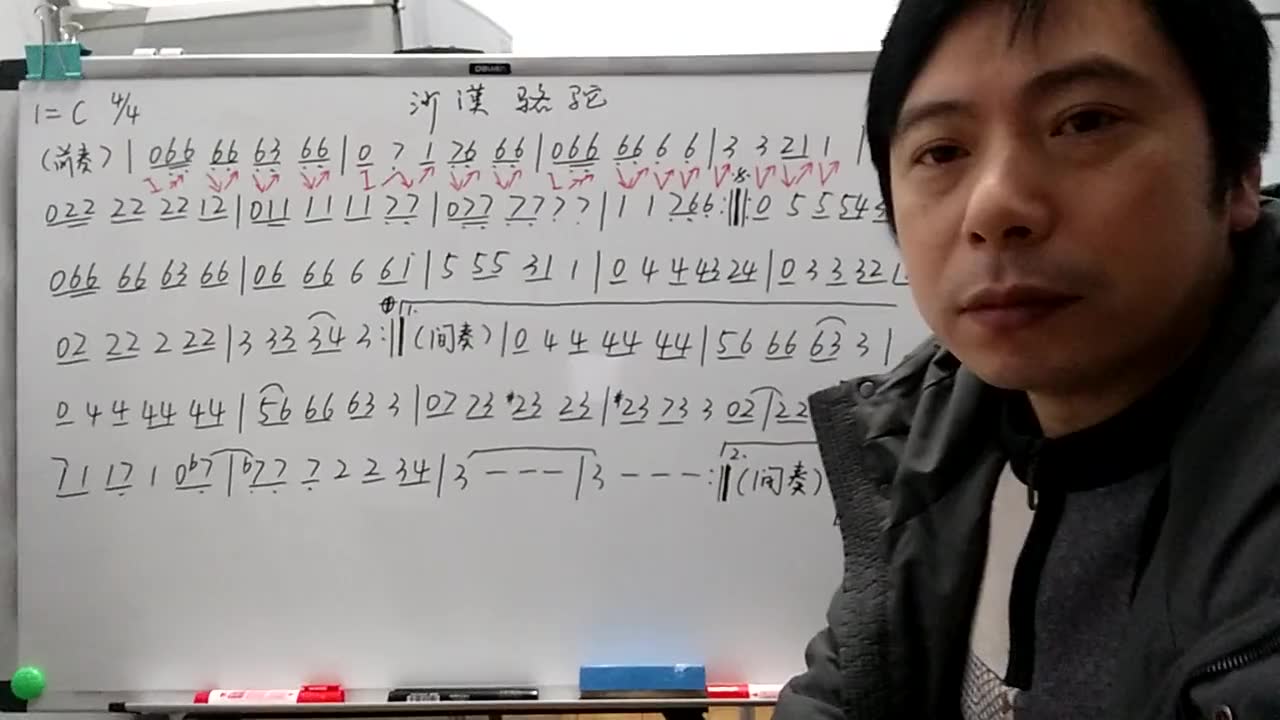 deli
1=C 4/4 沙漠骆驼
(前奏) | 066 66 63 66 | 0 7 1 76 66 | 066 66 6 6 | 3 3 21 1 |
022 22 22 12 | 011 11 11 77 | 077 77 7 7 | 1 1 766 :‖: 0 5 5 54 3
066 66 63 66 | 06 66 6 61 | 5 55 31 1 | 0 4 4 43 24 | 0 3 3 32
02 22 2 22 | 3 33 34 3 :‖ 1. (间奏) | 0 4 4 44 44 | 56 66 63 3 |
0 4 4 44 44 | 56 66 63 3 | 07 73 #23 23 | #23 73 3 02 | 22
71 17 1 0b7 | b77 7 2 2 34 | 3 - - - | 3 - - - :‖ 2. (间奏)